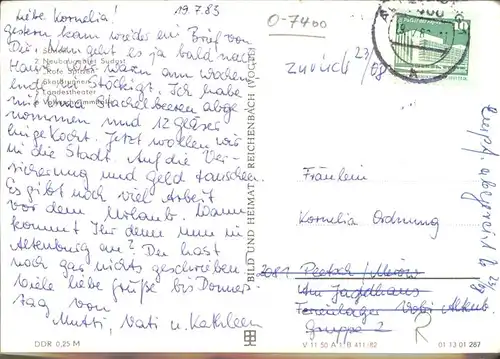 19.7.83
Liebe Kornelia!
Gestern kam wieder ein Brief von
Dir. Nun geht es ja bald nach
Haus. Wir waren am Wochen
ende in Stöckigt. Ich habe
mit Oma Stachelbeeren abge
nommen und 12 Gläser
eingekocht. Jetzt wollen wir
in die Stadt. Auf die Ver-
sicherung und Geld tauschen.
Es gibt noch viel Arbeit
vor dem Urlaub. Wann
kommt Ihr denn nun in
Altenburg an? Du hast
noch gar nichts geschrieben.
Viele liebe Grüße bis Donners
tag von
Mutti, Vati u. Kathleen
2. Neubaugebiet Südost
3. "Rote Spitzen"
4. Skatbrunnen
5. Landestheater
DDR 0,25 M
BILD UND HEIMAT REICHENBACH (VOGTL)
V 11 50 A 1/B 411/82
01 13 01 287
O-7400
zurück 23/08
Fräulein
Kornelia Ordnung
2081
Am Jagdhaus
Ferienlager
Gruppe 2
R